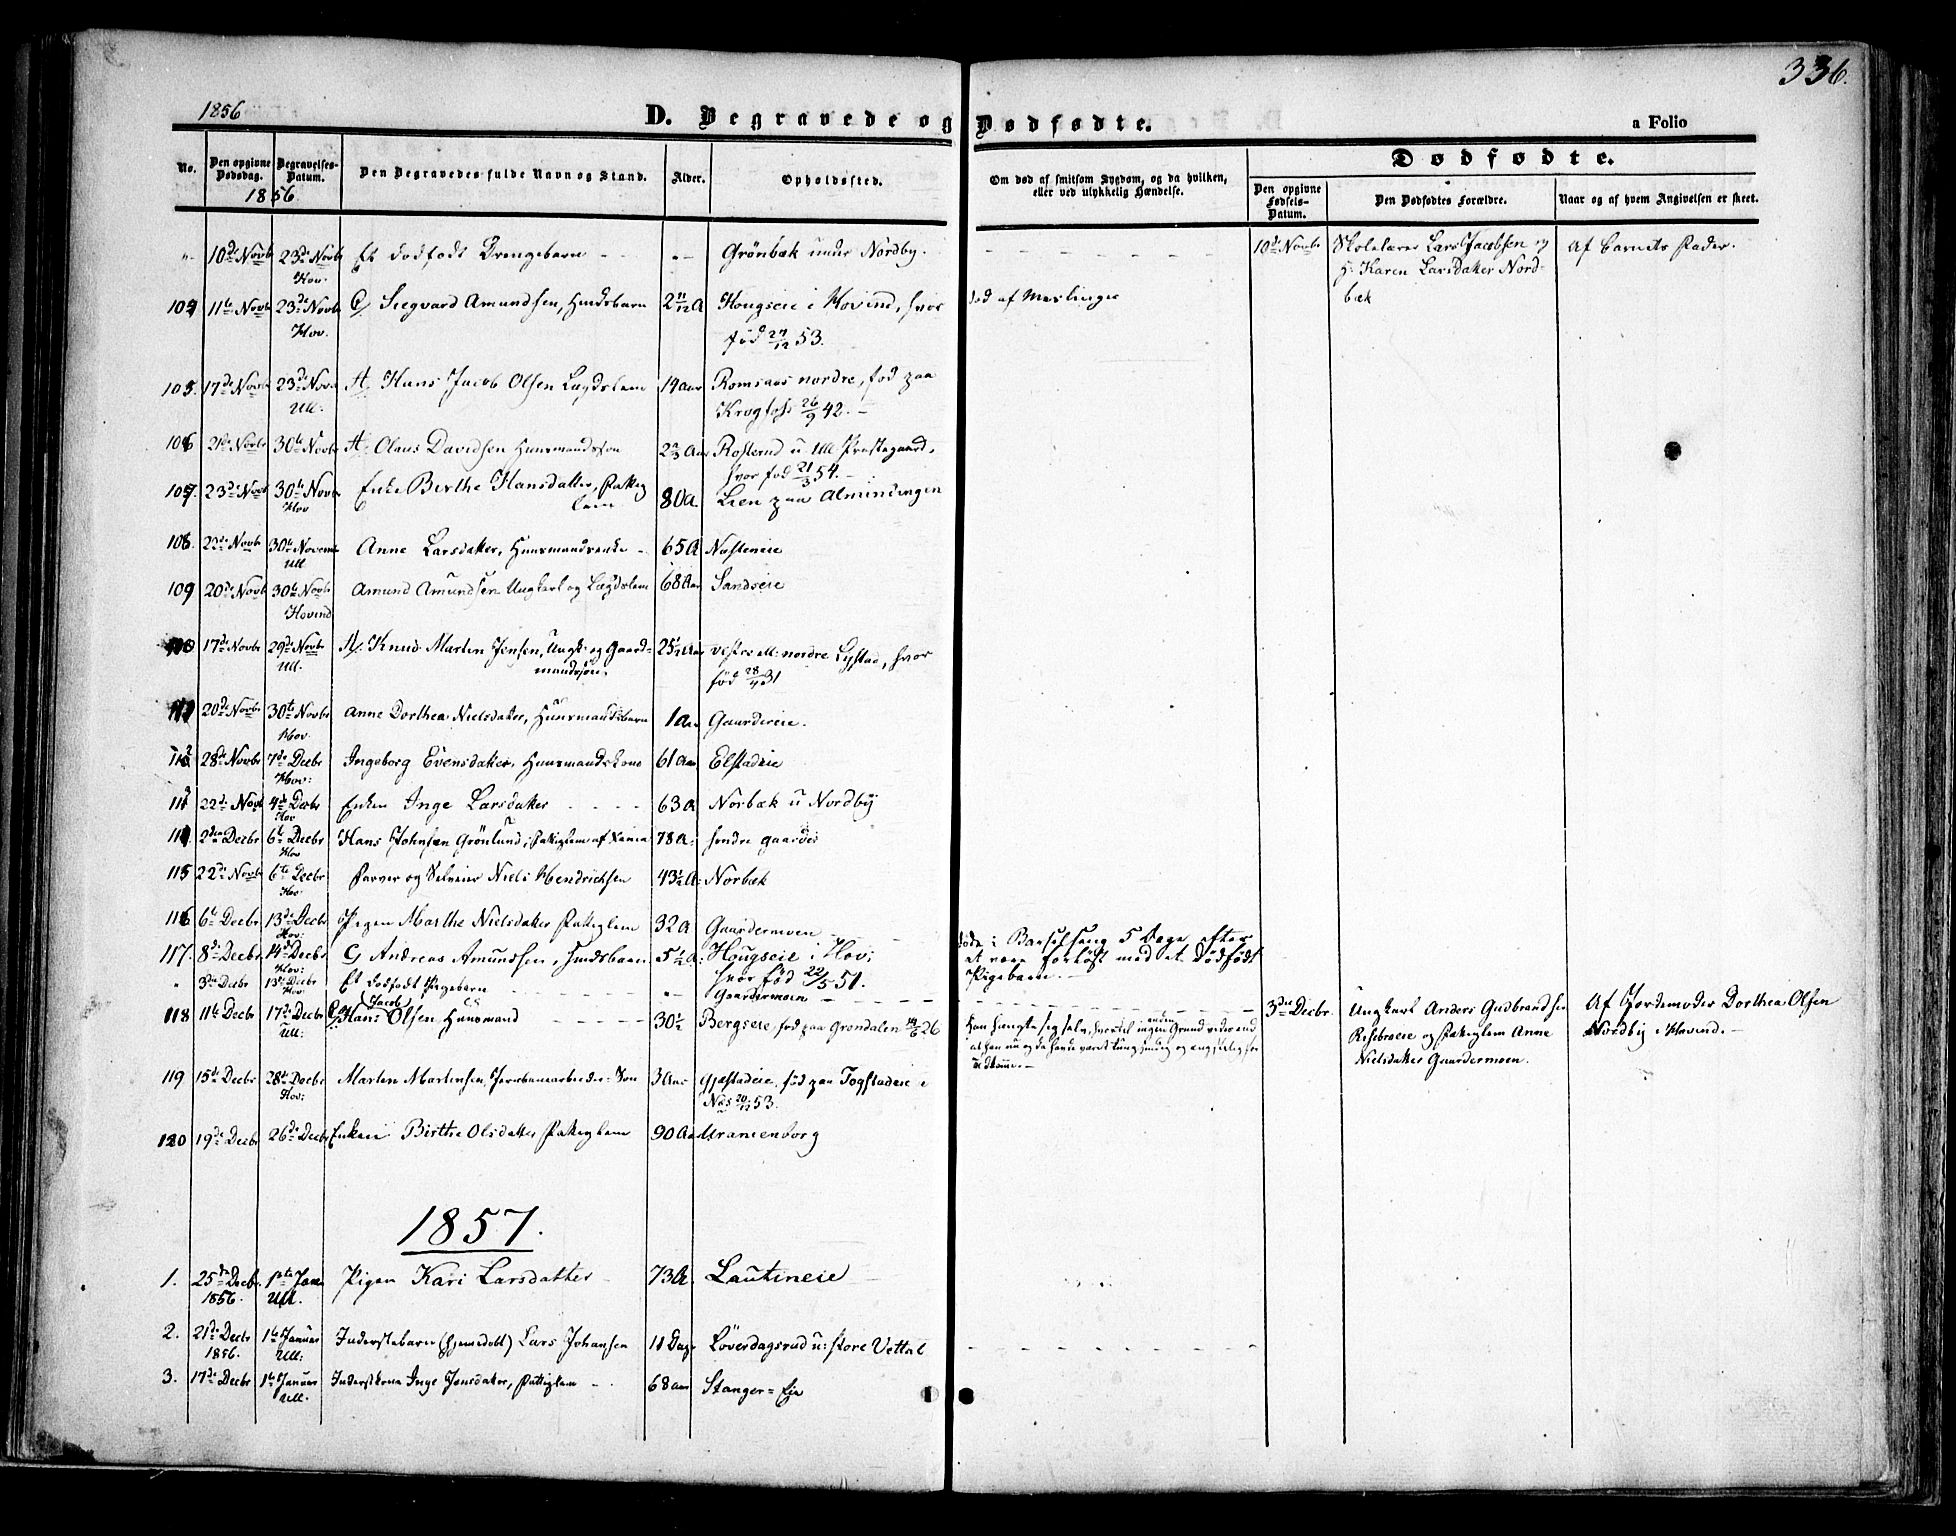 336.
1856
D. Begravede og Dødfødte.
a Folio
No.
Den opgivne Dødsdag.
Begravelses-Datum.
Den Begravedes fulde Navn og Stand.
Alder.
Opholdssted.
Om død af smitsom Sygdom, og da hvilken, eller ved ulykkelig Hændelse.
Dødfødte.
Den opgivne Fødsels-Datum.
Den Dødfødtes Forældre.
Naar og af hvem Angivelsen er skeet.
1856
" 10de Novb 23de Novb Et dødfødt Drengebarn - - "- Grönbæk under Nordby. - - - - 10de Novbr Skolelærer Lars Jacobsen og Af Barnets Fader.
Hov. H: Karen Larsdatter Nord-
bæk
104 11te Novb 23de Novb Siegvard Amundsen, Huusbarn 2 11/12 A Hougseie i Hovind, hvor død af Meslinger
Hov. fød 27/12 53.
105. 17de Novb 23de Novb Hans Jacob Olsen Lægdslem 14 Aar Romsaas nordre, fød paa
Ull. Krogfoss 26/9 42. -
106 21de Novbr 30te Novbr Claus Davidsen Huusmandssøn 2 2/3 Aar Rosterud u Ull Præstegaard,
hvor fød 21/3 54. -
107 23de Novb 30te Novb Enke Berthe Hansdatter, Fattig 80A. Lien paa Almindingen
Hov lem
108. 30te Novem Anne Larsdatter, Huusmandsenke - 65A Næsteneie
Ull
109 20de Novb 30te Novbr Amund Amundsen Ungkarl og Lægdslem 68 Aar Sandseie
Hovind
110 17de Novbr 29de Novbr Knud Martin Jensen, Ungk: og Gaard- 25 Aar nordre Lystad, hvor
Ull. mandssøn. fød 31
111 20de Novbr 30te Novbr Anne Dorthea Nielsdatter, Huusmandsbarn 1 Aar Gaardereie.
Hov.
112 28de Novbr 7de Decbr Ingeborg Evensdatter, Huusmandskone 61 Aar Elstadeie
Hov:
113 22de Novb 4de Decbr Enken Inge Larsdatter - - - - 63 A Norbæk u Nordby
Hov
114. 2den Decbr 6te Decbr Hans Johnsen Grönlund, Fattiglem af 78 A:
Hov
115 22de Novb 6te Decbr Farver og Selveier Niels Hendrichsen 43 1/2 A: Norbæk
Hov
116 6te Decbr 13de Decbr Pigen Marthe Nielsdatter Fattiglem 32 A Gaardermoen - - døde i Barselseng 5 Dage efter
Hov: at være forløst med et dødfødt
Pigebarn. -
117. 8de Decbr 14de Decbr Andreas Amundsen, Huusbarn 5 1/2 A: Hougseie i Hov:
Hov: hvor fød 22/5 51.
" 3die Decbr 13de Decbr Et dødfødt Pigebarn - - "- Gaardermoen - - - - 3die Decbr. Ungkarl Anders Gudbrandsen Af Jordemoder Dorthea Olsen
Hov: Risebroeie og Fattiglem Anne Nordby i Hovind. -
Nielsdatter Gaardermoen.
118 11te Decbr 17de Decbr Hans Jacob Olsen Huusmand - - - - 30 1/2 Bergseie, fød paa Grøndalen 26 Han hængte sig selv, hvortil ingen anden Grund vides end
Ull: at han nu og da havde været tungsindig og ængstelig for
119 15de Decbr 28de Decbr Martin Martinsen, Jernbanearbeider Søn 3 Aar Gjestadeie, fød paa Togstadeie i
Hov: Næs 20/12 53.
120 19de Decbr 26de Decbr Enken Birthe Olsdatter Fattiglem 90 Aar Uranienborg
1857.
1. 25de Decbr 1ste Janr Pigen Kari Larsdatter - 73A. Lautineie -
1856. Ull.
2. 21de Decbr 1ste Januar Inderstebarn (hjemedøbt) Lars Johansen 11 Dage Löverdagsrud u: store Vettal - - - -
1856. Ull:
3. 17de Decbr 1ste Januar Inderstkone Inge Jensdatter, Fattiglem - . 68 aar Stanger=Eje
Ull.